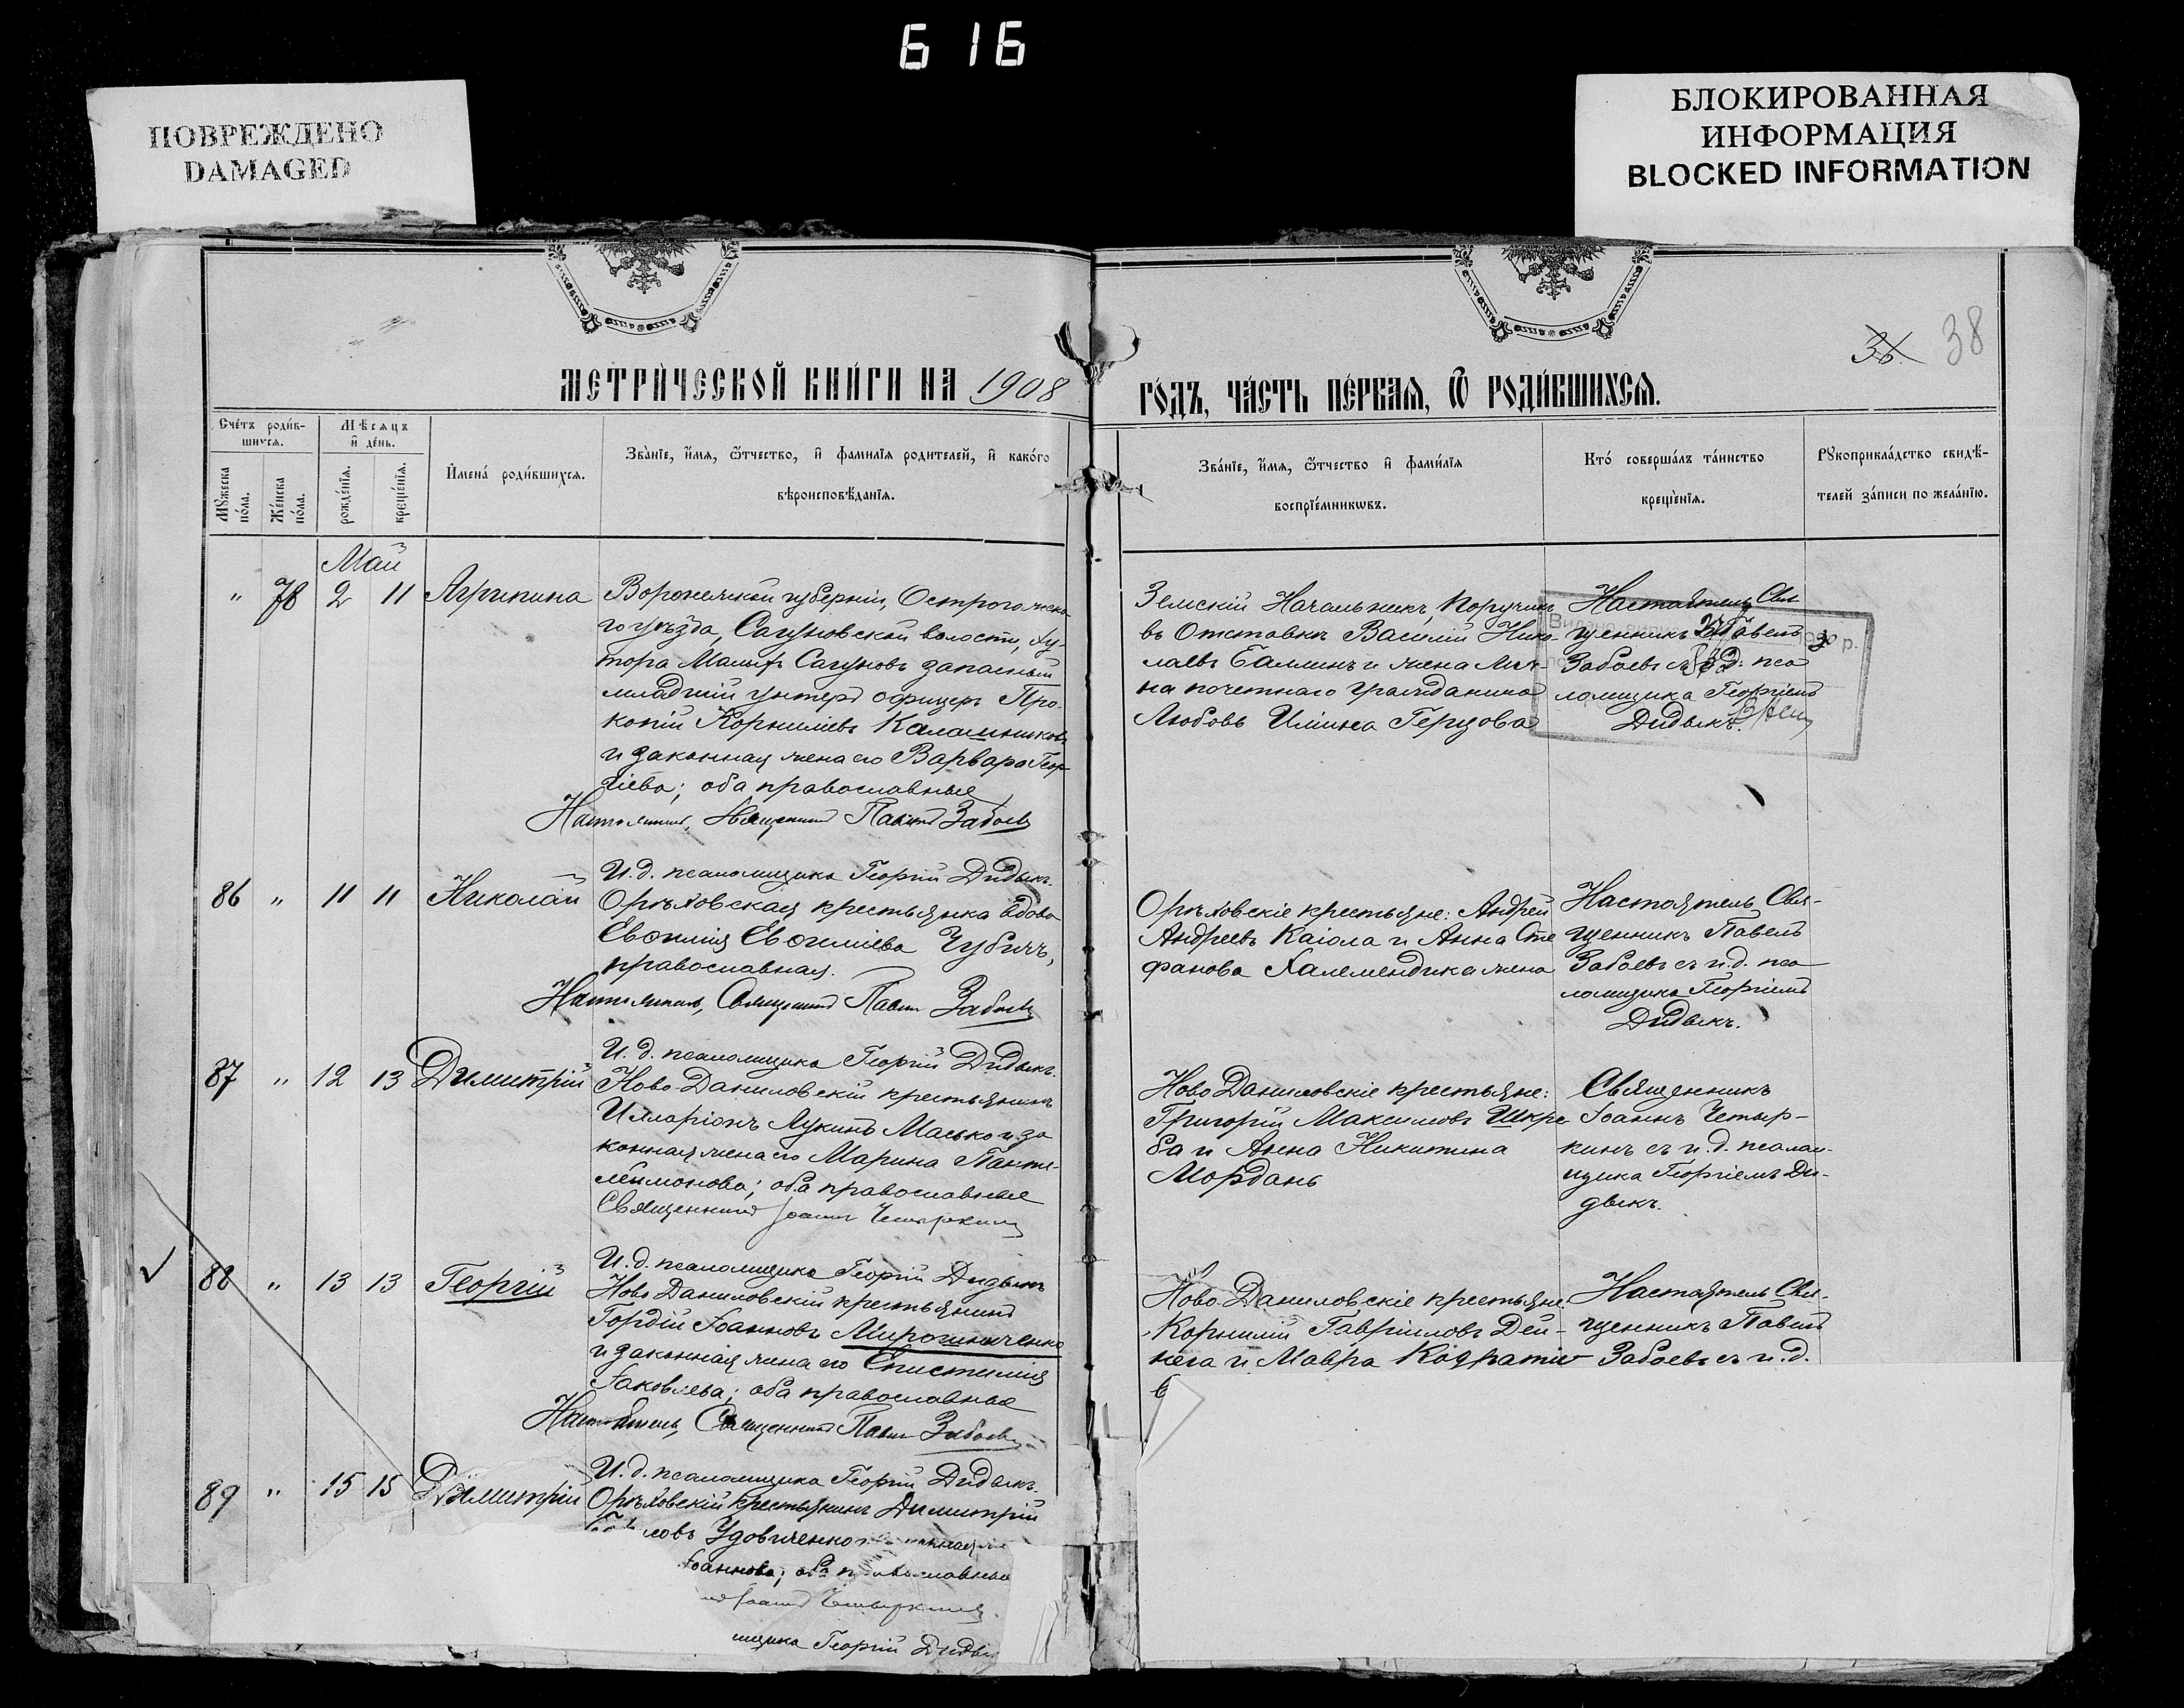 616
ПОВРЕЖДЕНО
DAMAGED
БЛОКИРОВАННАЯ
ИНФОРМАЦИЯ
BLOCKED INFORMATION
36 38
МЕТРИЧЕСКОЙ КНИГИ НА 1908
ГОДЪ, ЧАСТЬ ПЕРВАЯ, Ѿ РОДИВШИХСЯ.
Счетъ родив-
шихся.
Мужеска пола.
Женска пола.
Мѣсяцъ
и день.
рожденія.
крещенія.
Имена родившихся.
Званіе, имя, ѿчество, и фамилія родителей, и какого
вѣроисповѣданія.
Званіе, имя, ѿчество и фамилія
воспріемниковъ.
Кто совершалъ таинство
крещенія.
Рукоприкладство свидѣ-
телей записи по желанію.
Май
" 78 2 11 Агрипина
Воронежской губерніи, Острогожска-
го уѣзда, Сагуновской волости, ху-
тора Малыхъ Сагуновъ запасный
младшій унтеръ офицеръ Про-
копій Корниліевъ Калашниковъ
и законная жена его Варвара Геор-
гіева; оба православные
Настоятель, Священникъ Павелъ Забоевъ
И. д. псаломщика Георгій Дидыкъ.
Земскій Начальникъ, Поручикъ
въ Отставкѣ Василій Нико-
лаевъ Баллинъ и жена Лич-
на почетнаго гражданина
Любовь Ильина Герцова
Настоятель Свя-
щенникъ Павелъ
Забоевъ съ и. д. пса-
ломщика Георгіемъ
Дидыкъ.
86 " 11 11 Николай
Орѣховская крестьянка вдова
Евфимія Евфиміева Чубичъ,
православная.
Настоятель, Священникъ Павелъ Забоевъ
И. д. псаломщика Георгій Дидыкъ.
Орѣховскіе крестьяне: Андрей
Андреевъ Каіола и Анна Сте
фанова Халемендика жена
Настоятель Свя-
щенникъ Павелъ
Забоевъ съ и. д. пса-
ломщика Георгіемъ
Дидыкъ.
87 " 12 13 Димитрій
Ново Даниловскій крестьянинъ
Илларіонъ Лукинъ Масько и за
конная жена его Марина Панте-
леимонова; оба православные
Священникъ Іоаннъ Четыркинъ
И. д. псаломщика Георгій Дидыкъ
Ново Даниловскіе крестьяне:
Григорій Максимовъ Шкре
ба и Анна Никитина
Мордань
Священникъ
Іоаннъ Четыр-
кинъ съ и. д. псалом-
щика Георгіемъ Ди-
дыкъ.
88 " 13 13 Георгій
Ново Даниловскій крестьянинъ
Гордій Іоанновъ Мирошниченко
и законная жена его Епистимія
Іаковлева; оба православные
Настоятель, Священникъ Павелъ Забоевъ
И. д. псаломщика Георгій Дидыкъ.
Ново-Даниловскіе крестьяне
Корнилій Гавріиловъ Дей-
нега и Мавра Кодратіе
Настоятель Свя-
щенникъ Павелъ
Забоевъ съ и. д.
89 " 15 15 Димитрій
Орѣховскій крестьянинъ Димитрій
ловъ Удовиченко
Іоаннова; оба православные
Іоаннъ Четыркинъ.
щика Георгій Диды